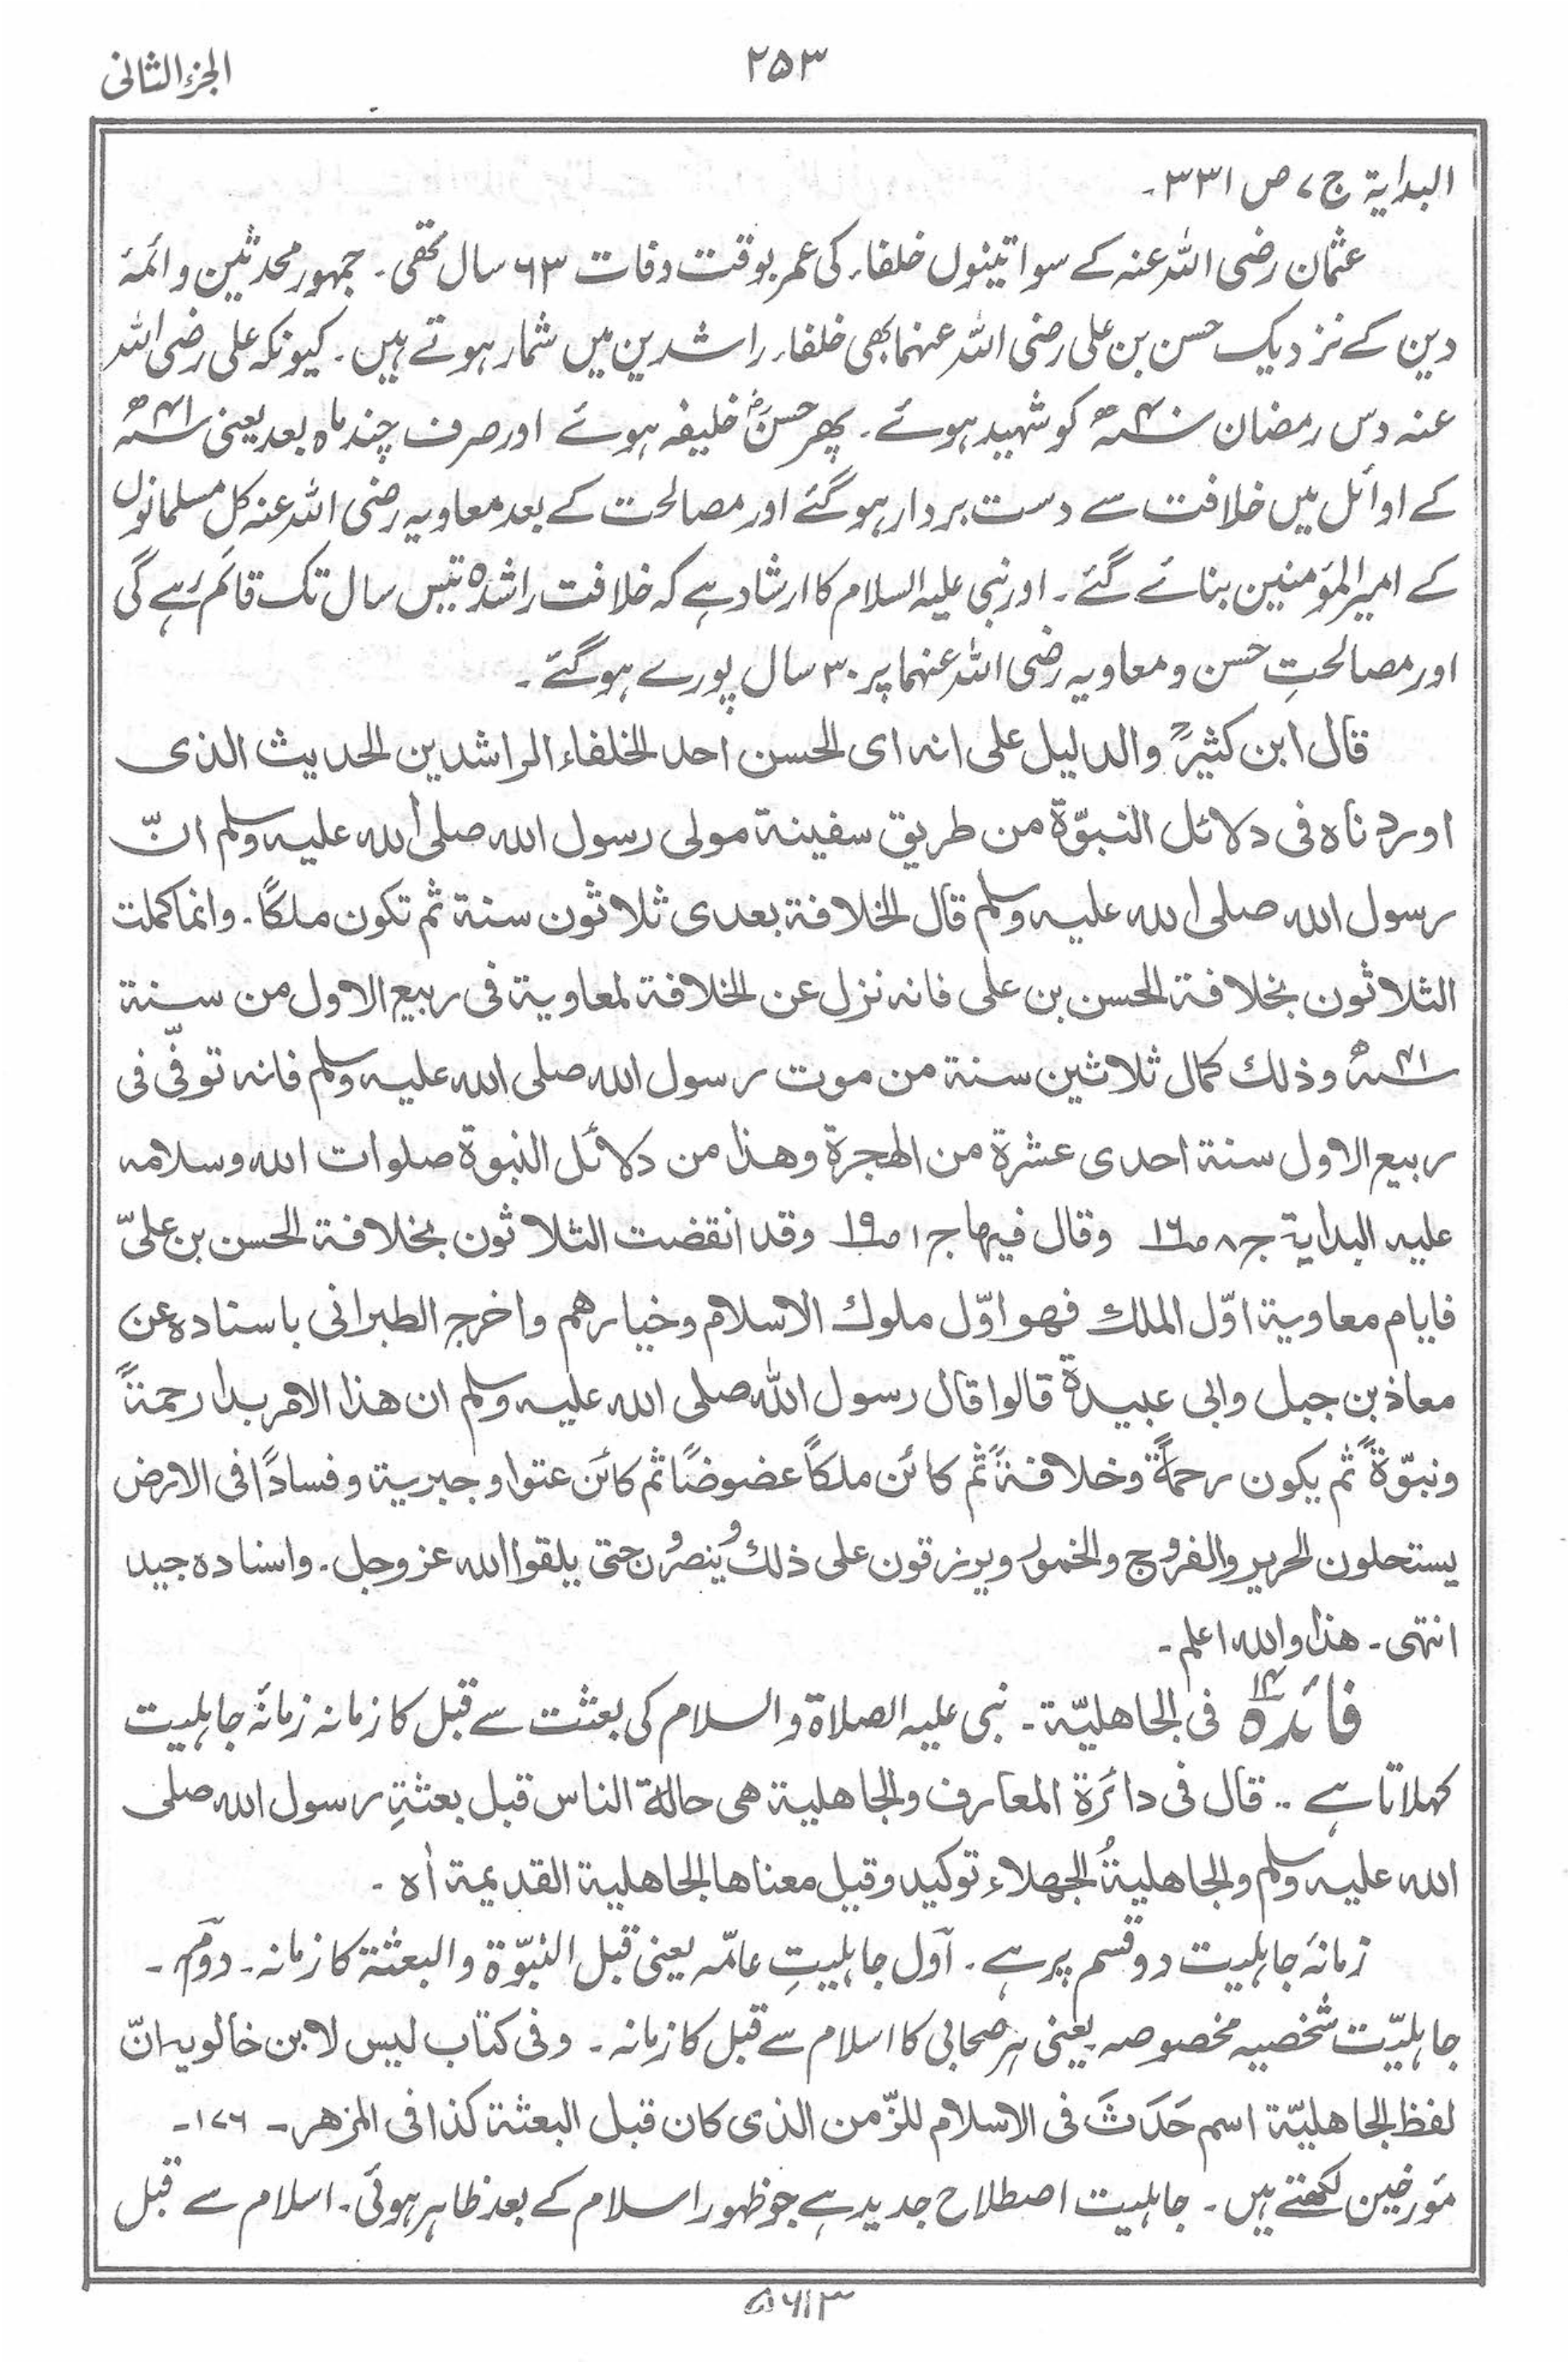 الجزء الثانی
۲۵۳
البدایۃ ج ۷ ص ۳۳۱۔
عثمان رضی اللہ عنہ کے سوا تینوں خلفاء کی عمر بوقت وفات ۶۳ سال تھی۔ جمہور محدثین و ائمۂ
دین کے نزدیک حسن بن علی رضی اللہ عنہما بھی خلفاء راشدین میں شمار ہوتے ہیں۔ کیونکہ علی رضی اللہ
عنہ دس رمضان سنہ ۴۰ھ کو شہید ہوئے۔ پھر حسنؓ خلیفہ ہوئے اور صرف چند ماہ بعد یعنی سنہ ۴۱ھ
کے اوائل میں خلافت سے دست بردار ہوگئے اور مصالحت کے بعد معاویہ رضی اللہ عنہ کل مسلمانوں
کے امیر المؤمنین بنائے گئے۔ اور نبی علیہ السلام کا ارشاد ہے کہ خلافت راشدہ تیس سال تک قائم رہے گی
اور مصالحتِ حسن و معاویہ رضی اللہ عنہما پر ۳۰ سال پورے ہوگئے۔
قال ابن کثیرؒ والدلیل علی انہ ای الحسن احد الخلفاء الراشدین الحدیث الذی
اوردناہ فی دلائل النبوّۃ من طریق سفینۃ مولی رسول اللہ صلی اللہ علیہ وسلم انّ
رسول اللہ صلی اللہ علیہ وسلم قال الخلافۃ بعدی ثلاثون سنۃ ثم تکون ملکًا۔ وانما کملت
الثلاثون بخلافۃ الحسن بن علی فانہ نزل عن الخلافۃ لمعاویۃ فی ربیع الاول من سنۃ
سنہ ۴۱ھ وذلک کمال ثلاثین سنۃ من موت رسول اللہ صلی اللہ علیہ وسلم فانہ توفّی فی
ربیع الاول سنۃ احدی عشرۃ من الھجرۃ وھذا من دلائل النبوۃ صلوات اللہ وسلامہ
علیہ البدایۃ ج ۸ ص ۱۶ وقال فیھا ج ۱ ص ۱۹ وقد انقضت الثلاثون بخلافۃ الحسن بن علیّ
فایام معاویۃ اوّل الملک فھو اوّل ملوک الاسلام وخیارھم واخرج الطبرانی باسنادہ عن
معاذ بن جبل وابی عبیدۃ قالوا قال رسول اللہ صلی اللہ علیہ وسلم ان ھذا الامر بدا رحمۃً
ونبوّۃً ثم یکون رحمۃً وخلافۃً ثم کائن ملکًا عضوضًا ثم کائن عتوا وجبریۃ وفسادًا فی الارض
یستحلون الحریر والفروج والخمور ویرزقون علی ذلک وینصرون حتی یلقوا اللہ عز وجل۔ واسنادہ جید
انتہی۔ ھذا واللہ اعلم۔
فائدہ ۱۴ فی الجاھلیّۃ۔ نبی علیہ الصلاۃ والسلام کی بعثت سے قبل کا زمانہ زمانۂ جاہلیت
کہلاتا ہے .. قال فی دائرۃ المعارف والجاھلیۃ ھی حالۃ الناس قبل بعثۃِ رسول اللہ صلی
اللہ علیہ وسلم والجاھلیۃُ الجھلاء توکید وقیل معناھا الجاھلیۃ القدیمۃ اٰہ۔
زمانۂ جاہلیت دو قسم پر ہے۔ اول جاہلیتِ عامّہ یعنی قبل النبوّۃ والبعثۃ کا زمانہ۔ دوم۔
جاہلیّت شخصیہ مخصوصہ یعنی ہر صحابی کا اسلام سے قبل کا زمانہ۔ وفی کتاب لیس لابن خالویہ انّ
لفظ الجاھلیّۃ اسم حَدَثَ فی الاسلام للزّمن الذی کان قبل البعثۃ کذا فی المزھر۔ ۱۷۶۔
مؤرخین لکھتے ہیں۔ جاہلیت اصطلاح جدید ہے جو ظہور اسلام کے بعد ظاہر ہوئی۔ اسلام سے قبل